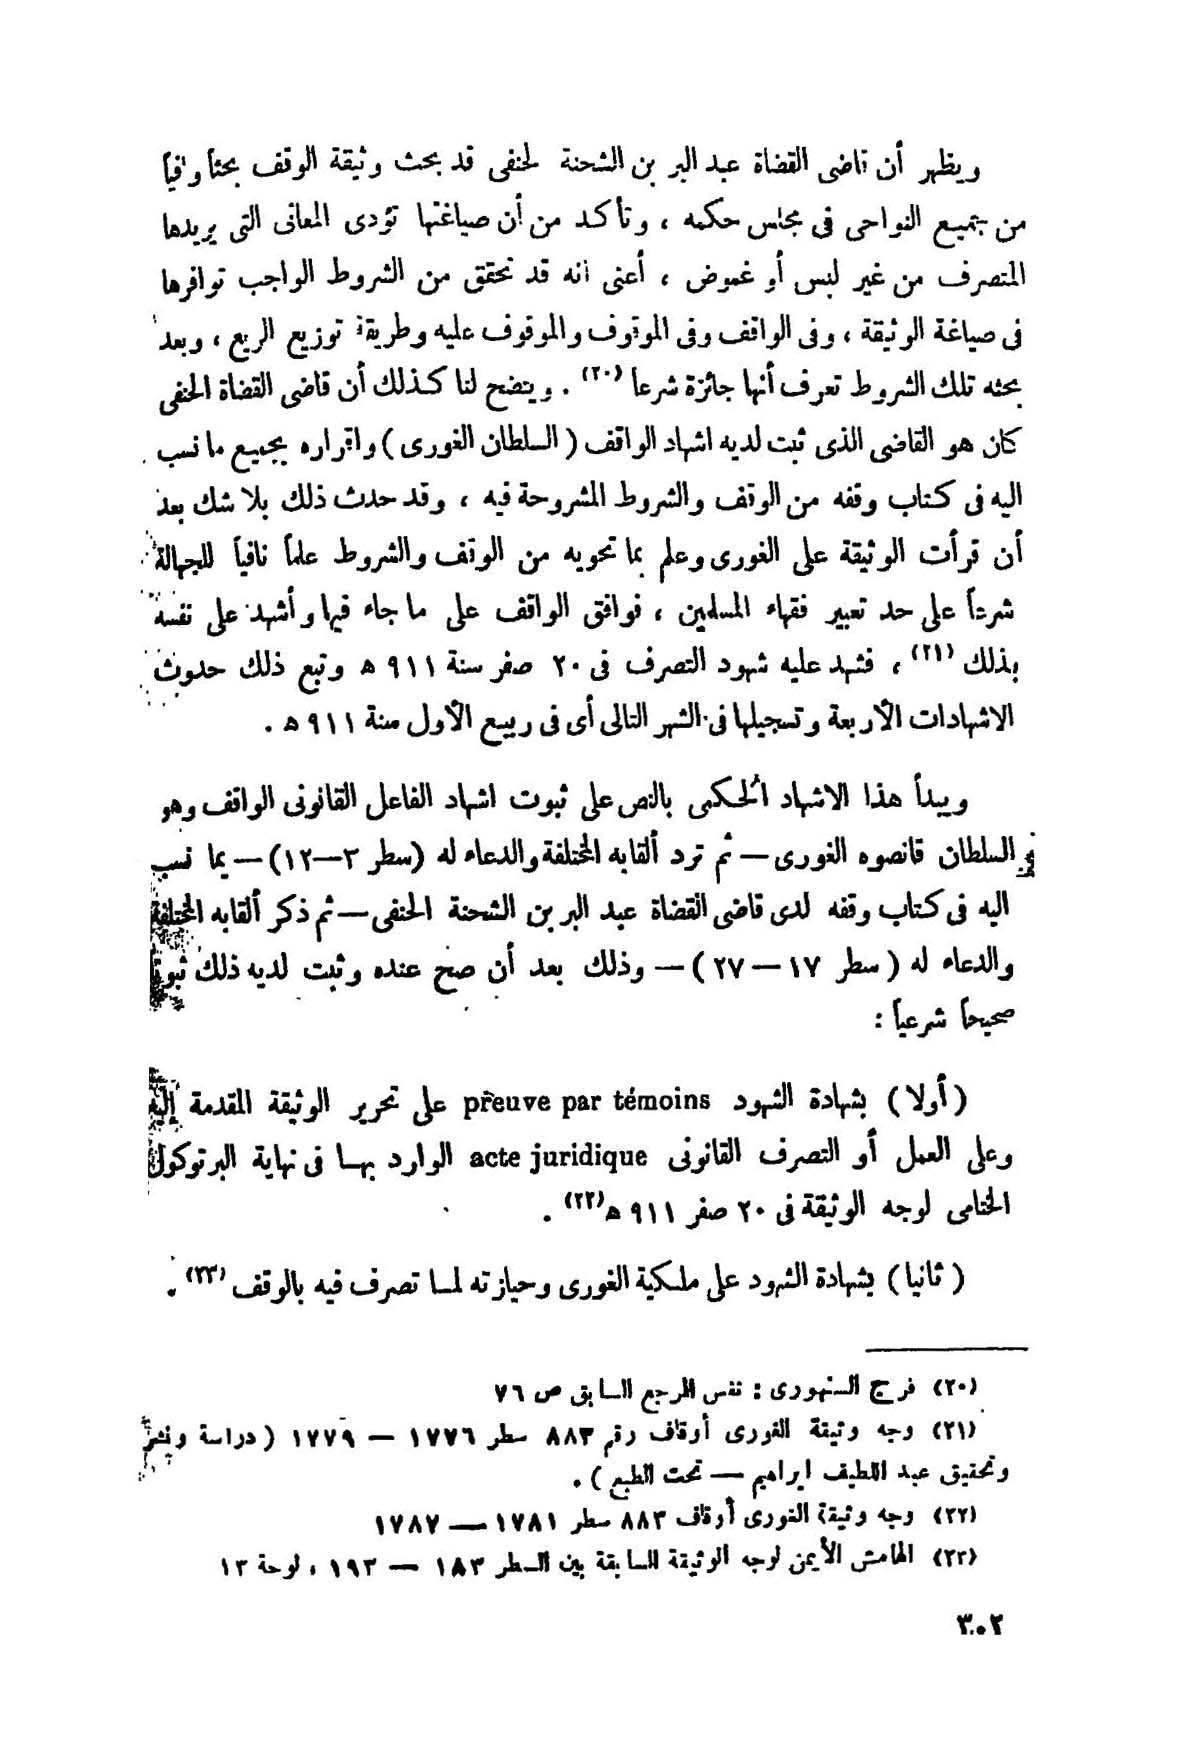 ويظهر أن قاضى القضاة عبد البر بن الشحنة لحنفى قد بحث وثيقة الوقف بحثاً وافياً
من جميع النواحى فى مجلس حكمه ، وتأكد من أن صياغتها تؤدى المعانى التى يريدها
المتصرف من غير لبس أو غموض ، أعنى انه قد تحقق من الشروط الواجب توافرها
فى صياغة الوثيقة ، وفى الواقف وفى الموقوف والموقوف عليه وطريقة توزيع الريع ، وبعد
بحثه تلك الشروط تعرف أنها جائزة شرعا (٢٠) . ويتضح لنا كذلك أن قاضى القضاة الحنفى
كان هو القاضى الذى ثبت لديه اشهاد الواقف ( السلطان الغورى ) واقراره بجميع ما نسب
اليه فى كتاب وقفه من الوقف والشروط المشروحة فيه ، وقد حدث ذلك بلا شك بعد
أن قرأت الوثيقة على الغورى وعلم بما تحويه من الوقف والشروط علماً نافياً للجهالة
شرعاً على حد تعبير فقهاء المسلمين ، فوافق الواقف على ما جاء فيها وأشهد على نفسه
بذلك (٢١) ، فشهد عليه شهود التصرف فى ٢٠ صفر سنة ٩١١ ه وتبع ذلك حدوث
الاشهادات الأربعة وتسجيلها فى الشهر التالى أى فى ربيع الأول سنة ٩١١ ه .
ويبدأ هذا الاشهاد الحكمى بالنص على ثبوت اشهاد الفاعل القانونى الواقف وهو
السلطان قانصوه الغورى — ثم ترد ألقابه المختلفة والدعاء له (سطر ٣—١٢) — بما نسب
اليه فى كتاب وقفه لدى قاضى القضاة عبد البر بن الشحنة الحنفى — ثم ذكر ألقابه المختلفة
والدعاء له ( سطر ١٧ — ٢٧ ) — وذلك بعد أن صح عنده وثبت لديه ذلك ثبوتا
صحيحاً شرعياً :
( أولا ) بشهادة الشهود preuve par témoins على تحرير الوثيقة المقدمة إليه
وعلى العمل أو التصرف القانونى acte juridique الوارد بهـا فى نهاية البرتوكول
الختامى لوجه الوثيقة فى ٢٠ صفر ٩١١ ه (٢٢) .
( ثانيا ) بشهادة الشهود على ملكية الغورى وحيازته لمـا تصرف فيه بالوقف (٢٣) .
(٢٠) فرج السنهورى : نفس المرجع السابق ص ٧٦
(٢١) وجه وثيقة الغورى أوقاف رقم ٨٨٣ سطر ١٧٧٦ — ١٧٧٩ ( دراسة ونشر
وتحقيق عبد اللطيف ابراهيم — تحت الطبع ) .
(٢٢) وجه وثيقة الغورى أوقاف ٨٨٣ سطر ١٧٨١ — ١٧٨٧
(٢٣) الهامش الأيمن لوجه الوثيقة السابقة بين السطر ١٨٣ — ١٩٣ ، لوحة ١٣
٣٠٢